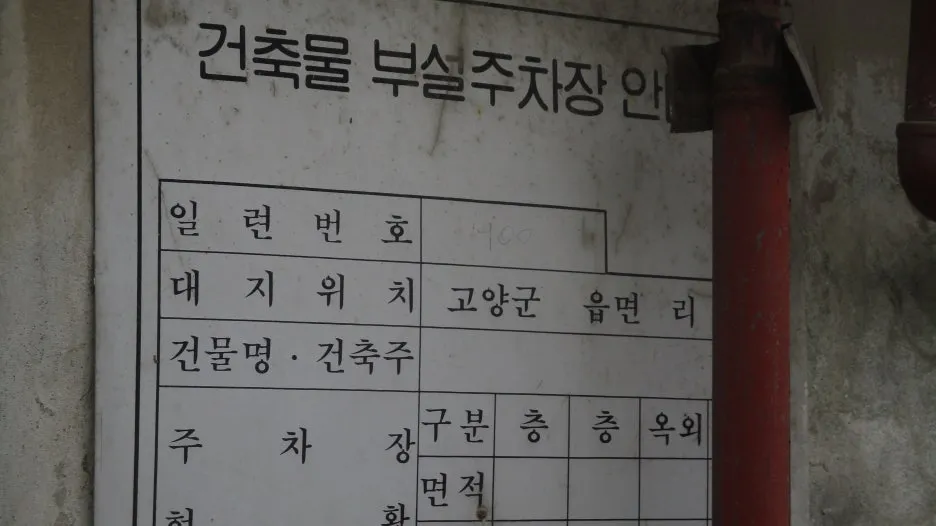 건축물 부설주차장 안
일 련 번 호
대 지 위 치 고양군 읍면 리
건물명 · 건축주
주 차 장 구분 층 층 옥외
면적
현 황